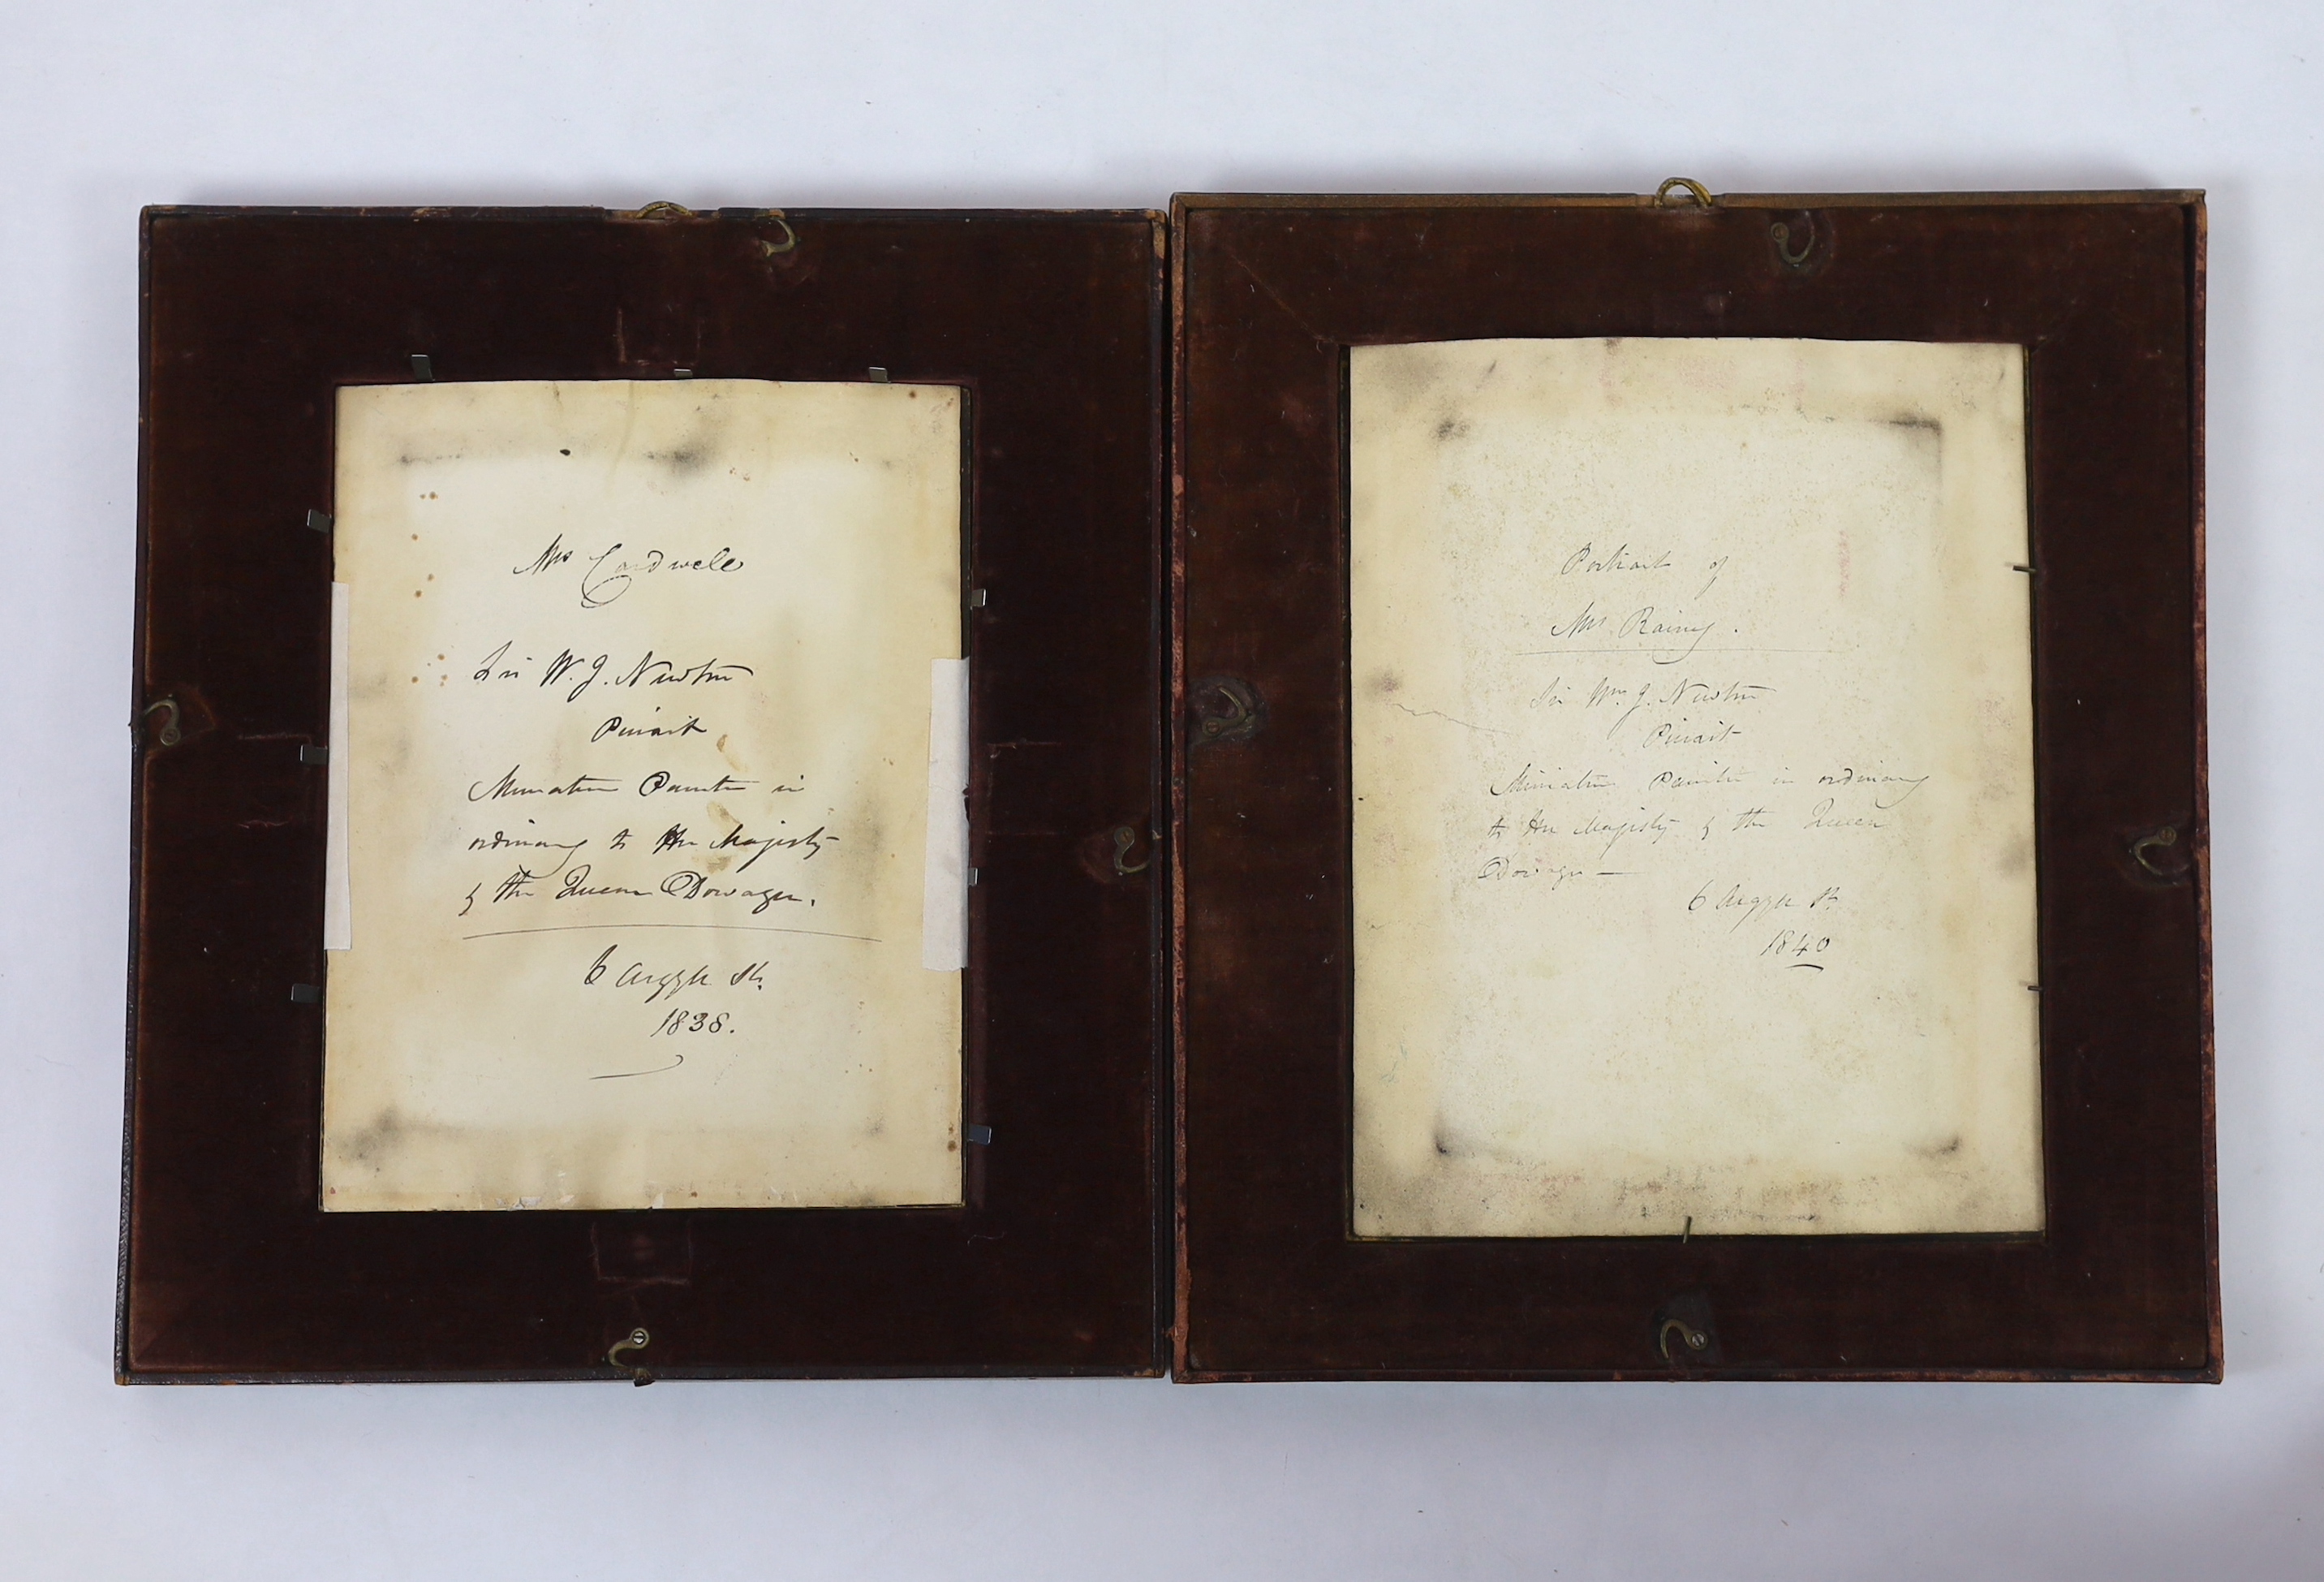 Mrs Cardwell
Sir W. J. Newton
Pinxit
Miniature Painter in
ordinary to Her Majesty
& the Queen Dowager.
6 Argyll St.
1838.
Portrait of
Mrs Rainey.
Sir Wm. J. Newton
Pinxit
Miniature Painter in ordinary
to Her Majesty & the Queen
Dowager —
6 Argyll St.
1840